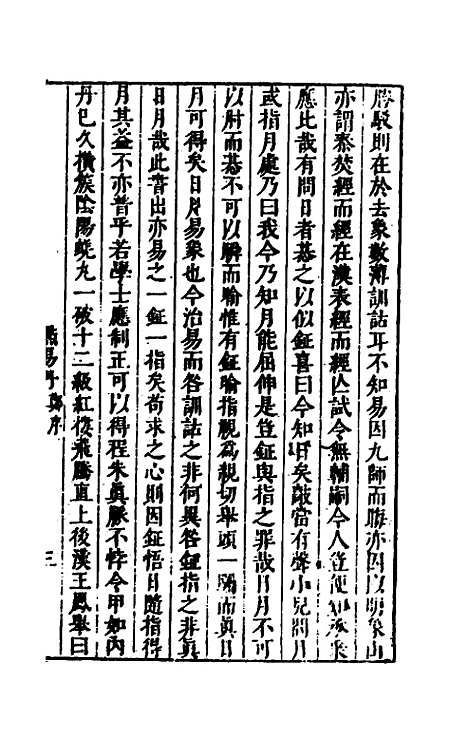 勝駁則在於去象數薄訓詁耳不知易因九師而晦亦因以明象山
亦謂秦焚經而經在漢表經而經亾試令無輔嗣令人豈便
應此哉有問日者綦之以似鉦喜曰今知日矣敲當有聲小兒問月
或指月處乃曰我今乃知月能屈伸是豈鉦與指之罪哉日月不可
以肘而綦不可以瞬而喻惟有鉦喻指視為親切舉頭一隔而眞日
月可得矣日月易象也今治易而咎訓詁之非何異咎鉦指之非眞
日月哉此書出亦易之一鉦一指矣苟求之心則因鉦悟日隨指得
月其益不亦普乎若學士應制正可以得程朱眞脈不悖令甲如內
丹巳久橫簇陰陽蟯丸一破十二級紅樓飛騰直上後漢王鳳舉曰
易 序
三